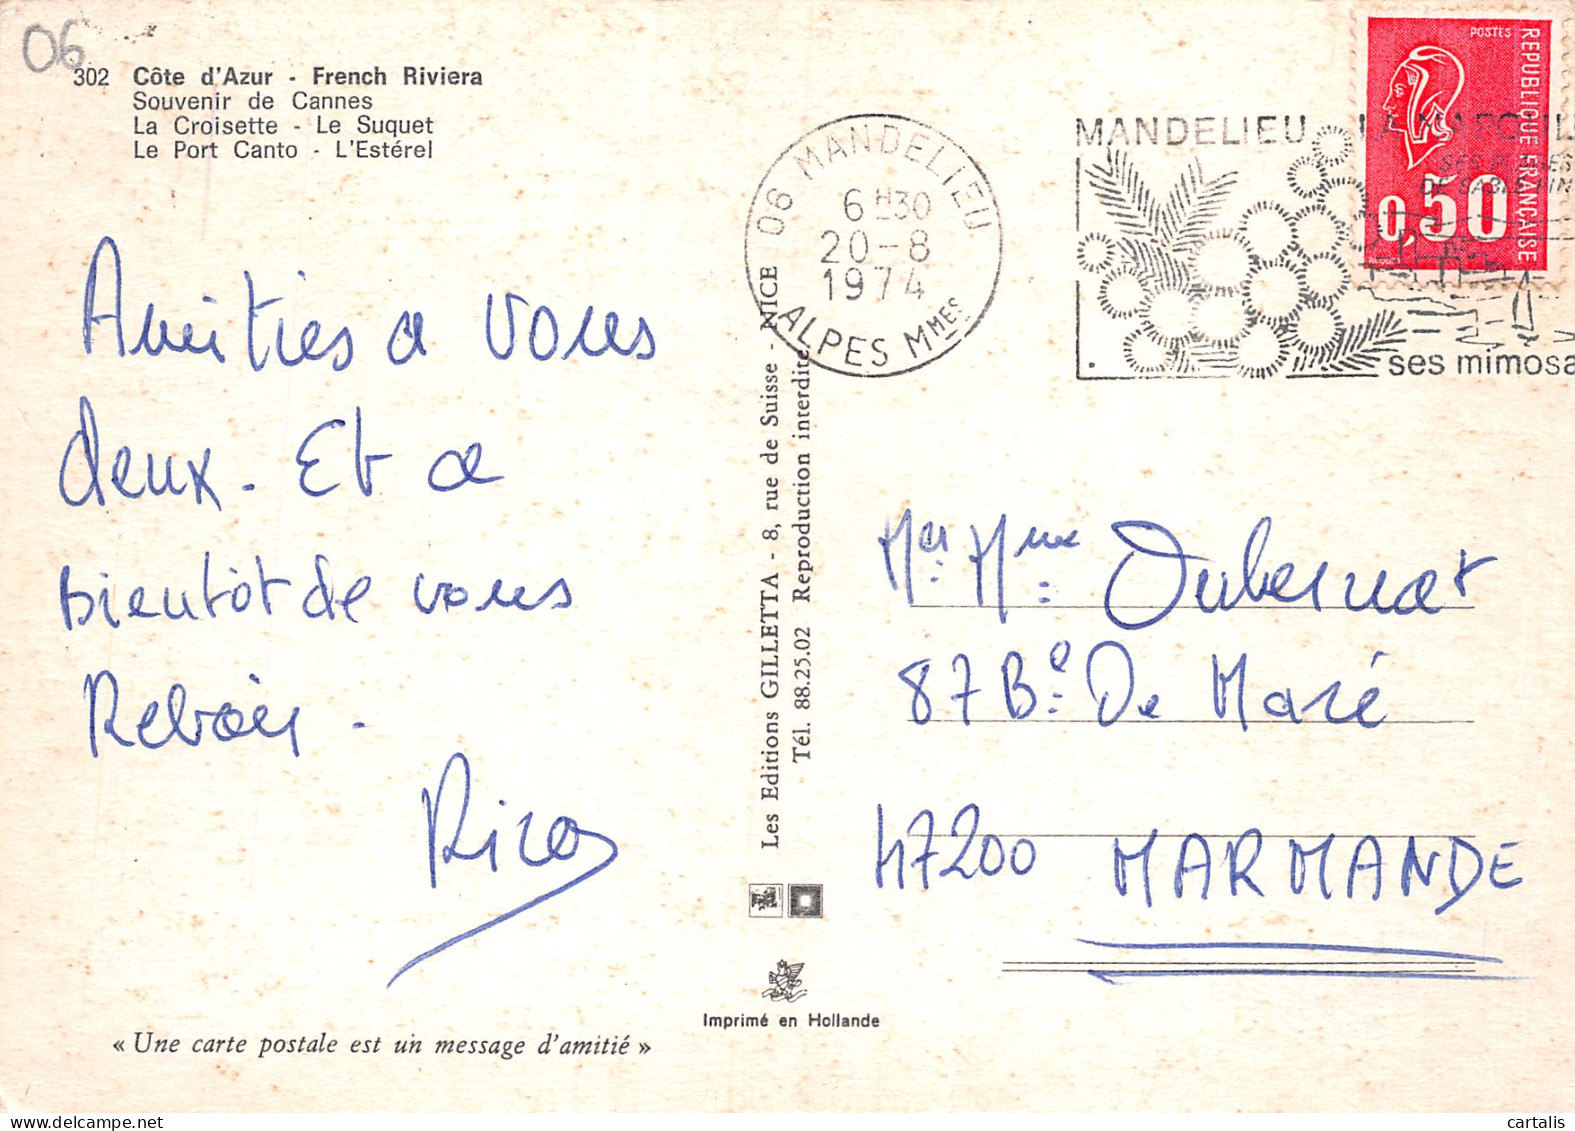 06
302 Côte d'Azur - French Riviera
Souvenir de Cannes
La Croisette - Le Suquet
Le Port Canto - L'Estérel
Amitiés a vous
deux. Et a
bientôt de vous
Revoir.
Rico
« Une carte postale est un message d'amitié »
Les Editions GILLETTA - 8, rue de Suisse - NICE
Tél. 88.25.02 Reproduction interdite
Imprimé en Hollande
06 MANDELIEU
6 H30
20-8
1974
ALPES MMES
MANDELIEU LA NAPOUL
SES PLAGES
DE SABLE FIN
ses mimosa
POSTES
REPUBLIQUE FRANÇAISE
0,50
Mr. Mme. Dubernat
87 Bd. De Maré
47200 MARMANDE
delcampe.net
cartalis